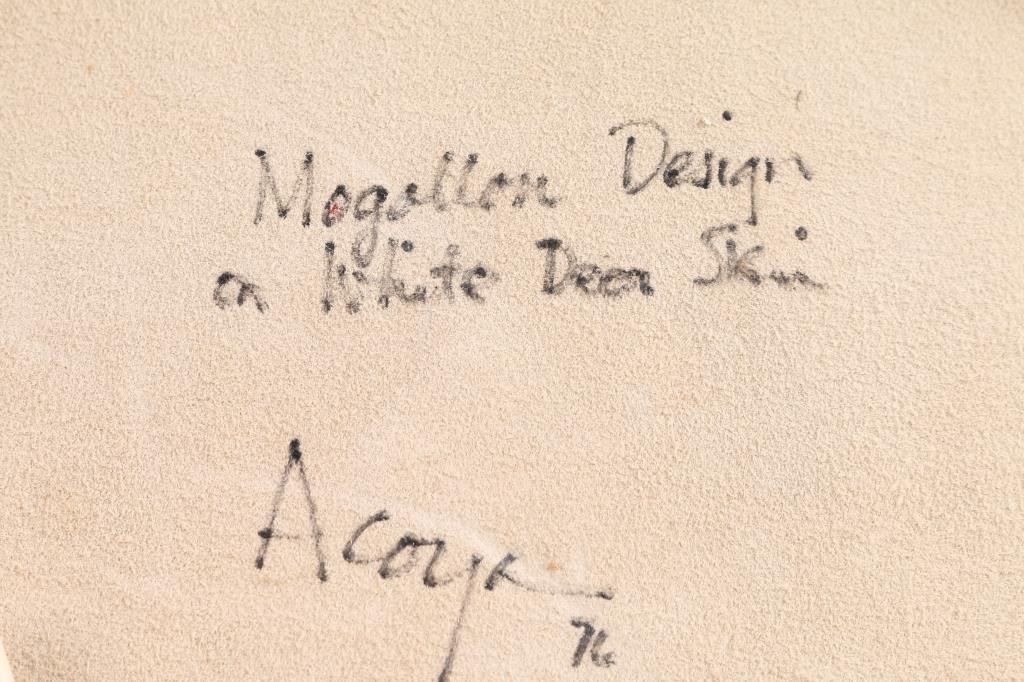 Mogollon Design
on White Deer Skin
Acoya
76